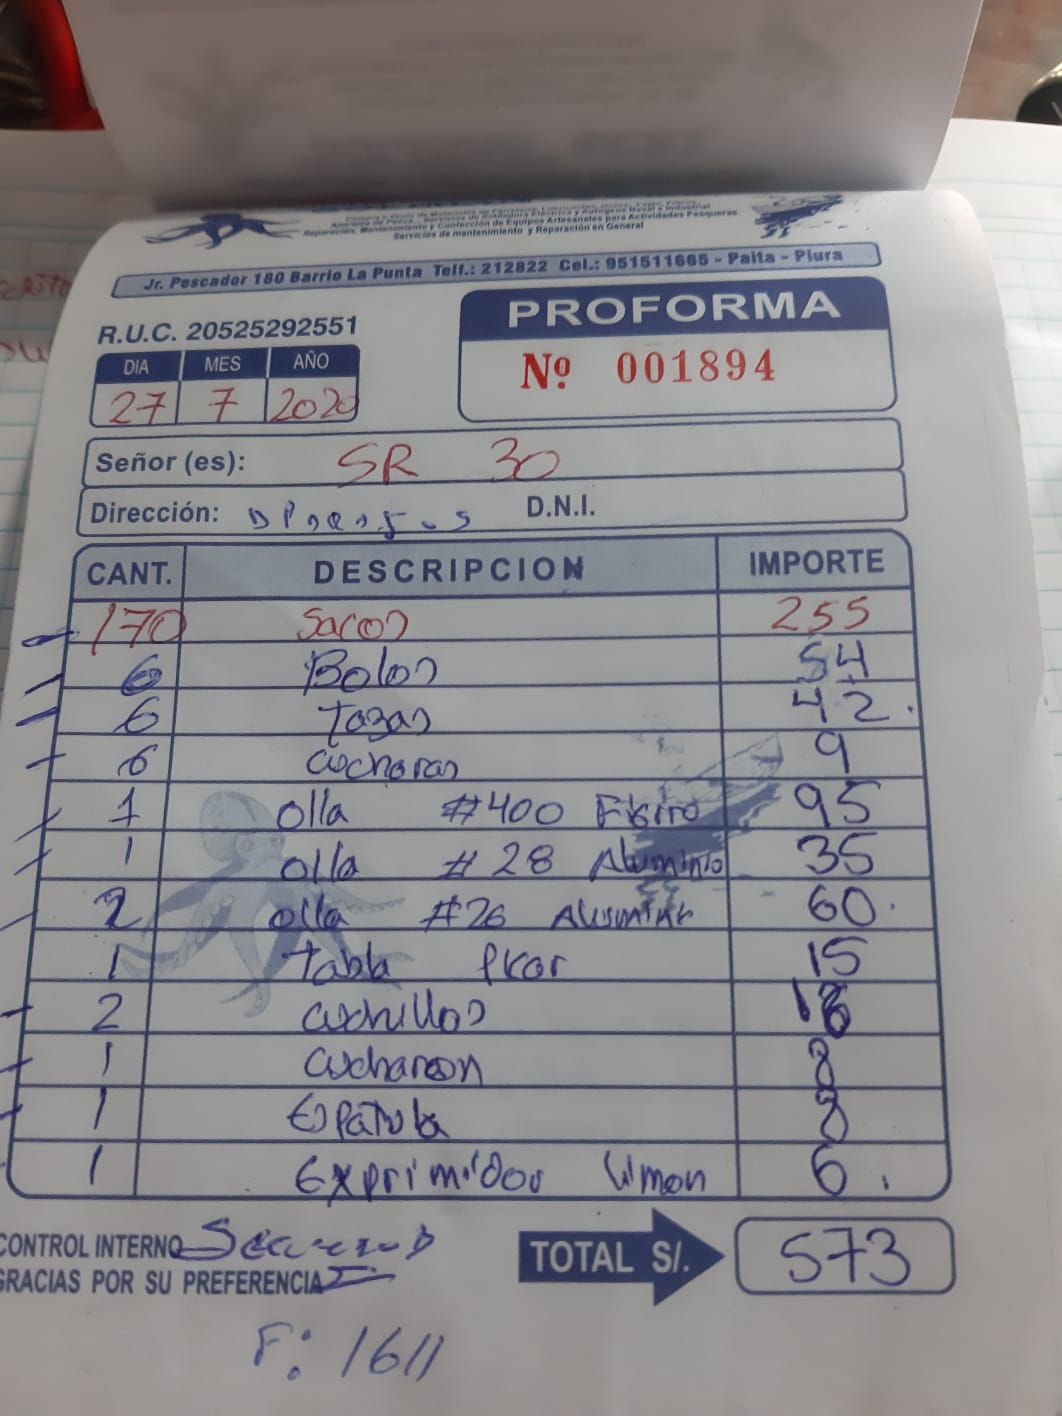 Reparación, Mantenimiento y Confección de Equipos Artesanales para Actividades Pesqueras
Servicios de mantenimiento y Reparación en General
Jr. Pescador 180 Barrio La Punta Telf.: 212822 Cel.: 951511665 - Paita - Piura
R.U.C. 20525292551
PROFORMA
Nº 001894
DIA MES AÑO
27 7 2020
Señor (es): SR 30
Dirección: D.N.I.
CANT. DESCRIPCION IMPORTE
170 Sacos 255
6 Bolos 54
6 tazas 42.
6 cucharas 9
1 olla #400 Fierro 95
1 olla #28 Aluminio 35
2 olla #26 60.
1 tabla Picar 15
2 cuchillos
1 cucharon 8
1 Espatula 8
1 Exprimidor limon 6.
CONTROL INTERNO
GRACIAS POR SU PREFERENCIA
TOTAL S/. 573
F: 1611